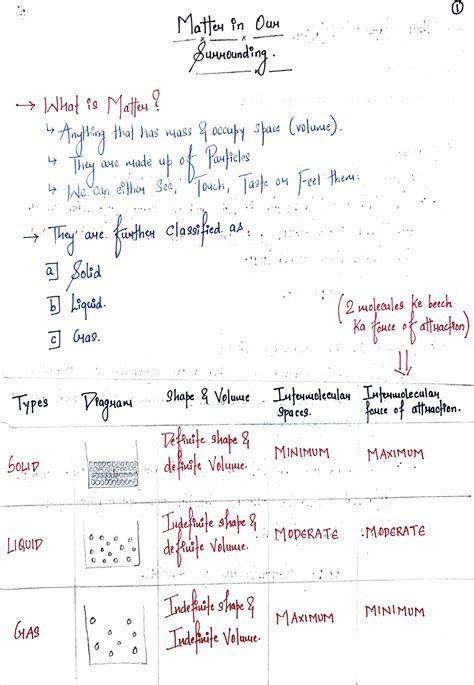 1
Matter in Our
Surrounding.
→ What is Matter?
↳ Anything that has mass & occupy space (volume).
↳ They are made up of Particles
↳ We can either See, Touch, Taste or Feel them.
→ They are further classified as.
a] Solid
b] Liquid.
c] Gas.
(2 molecules ke beech
Ka force of attraction)
Types Diagram Shape & Volume Intermolecular Spaces. Intermolecular force of attraction.
SOLID Definite shape & definite Volume. MINIMUM MAXIMUM
LIQUID Indefinite shape & definite Volume. MODERATE MODERATE
GAS Indefinite shape & Indefinite Volume. MAXIMUM MINIMUM